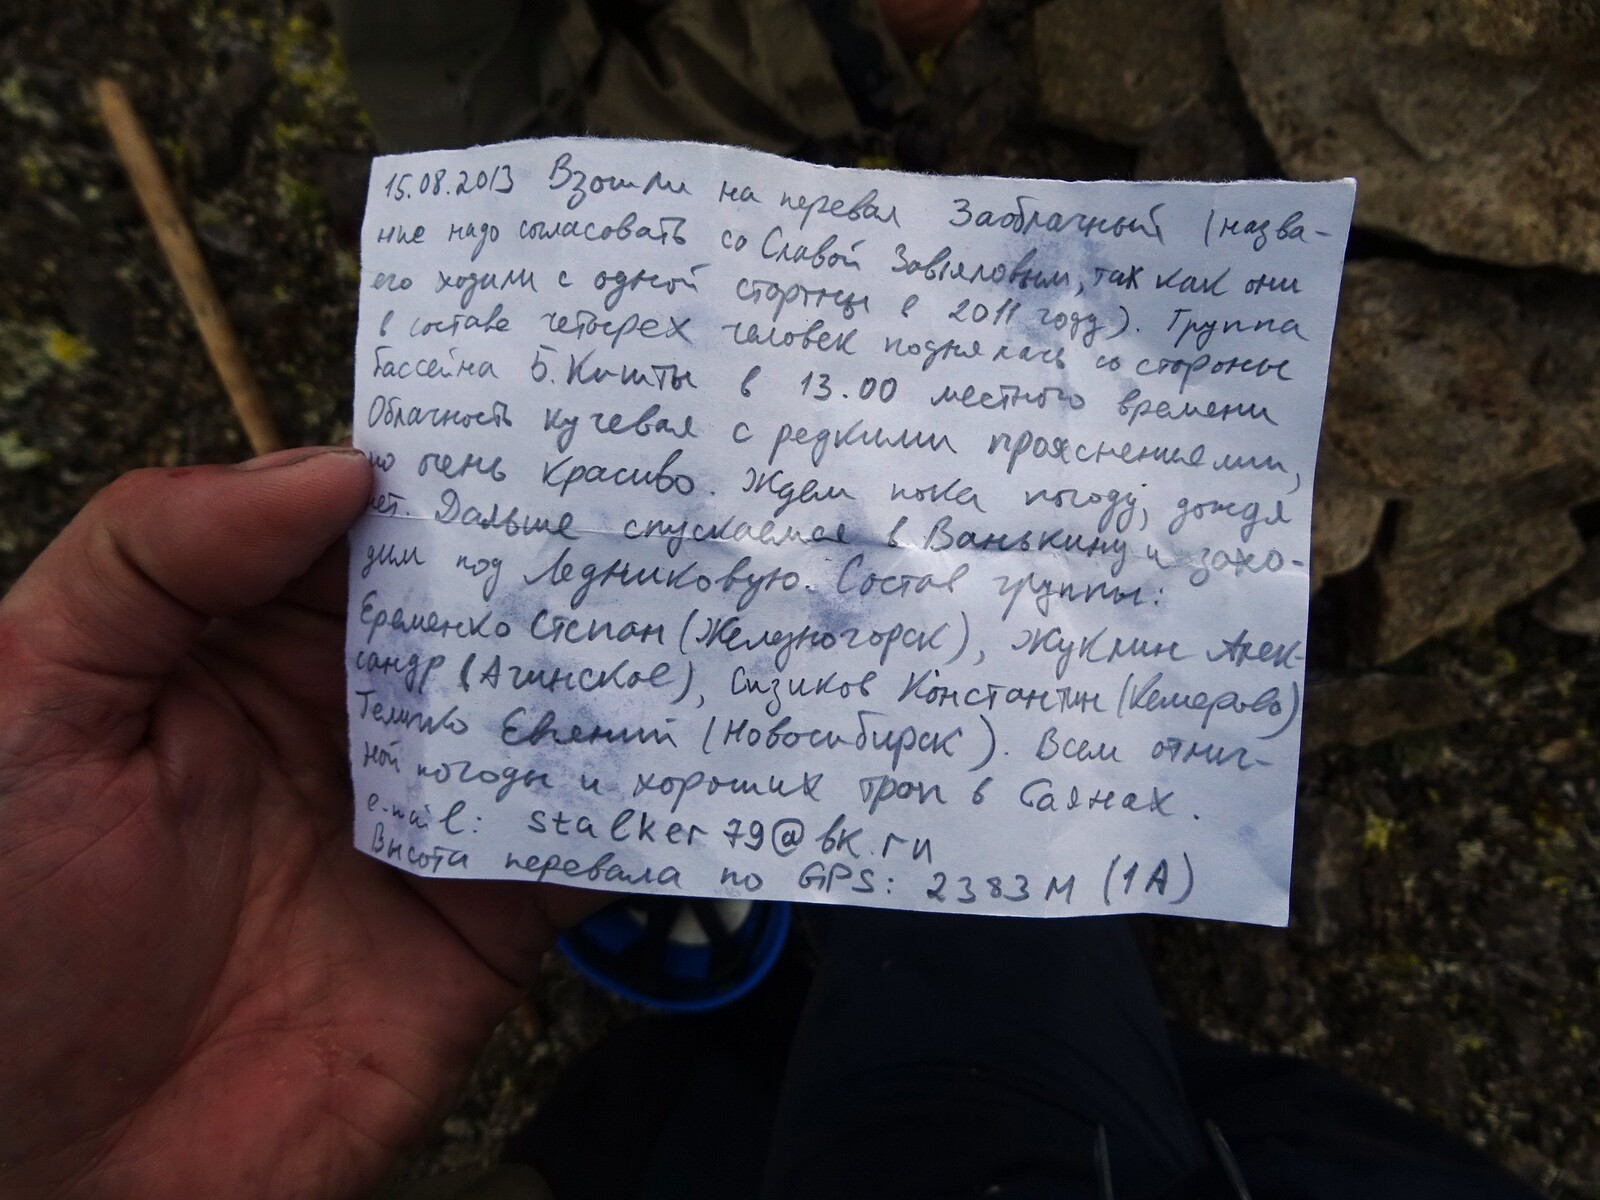 15.08.2013 Взошли на перевал Заоблачный (назва-
ние надо согласовать со Славой Завьяловым, так как они
его ходили с одной стороны в 2011 году). Группа
в составе четырех человек поднялась со стороны
бассейна Б. Кишты в 13.00 местного времени
Облачность кучевая с редкими прояснениями,
но очень красиво. Ждем пока погоду, дождя
нет. Дальше спускаемся в Ванькину и захо-
дим под Ледниковую. Состав группы:
Еременко Степан (Железногорск), Жуклин Алек-
сандр (Агинское), Сизиков Константин (Кемерово)
Теличко Евгений (Новосибирск). Всем отлич-
ной погоды и хороших троп в Саянах.
e-mail: stalker79@bk.ru
Высота перевала по GPS: 2383м (1А)